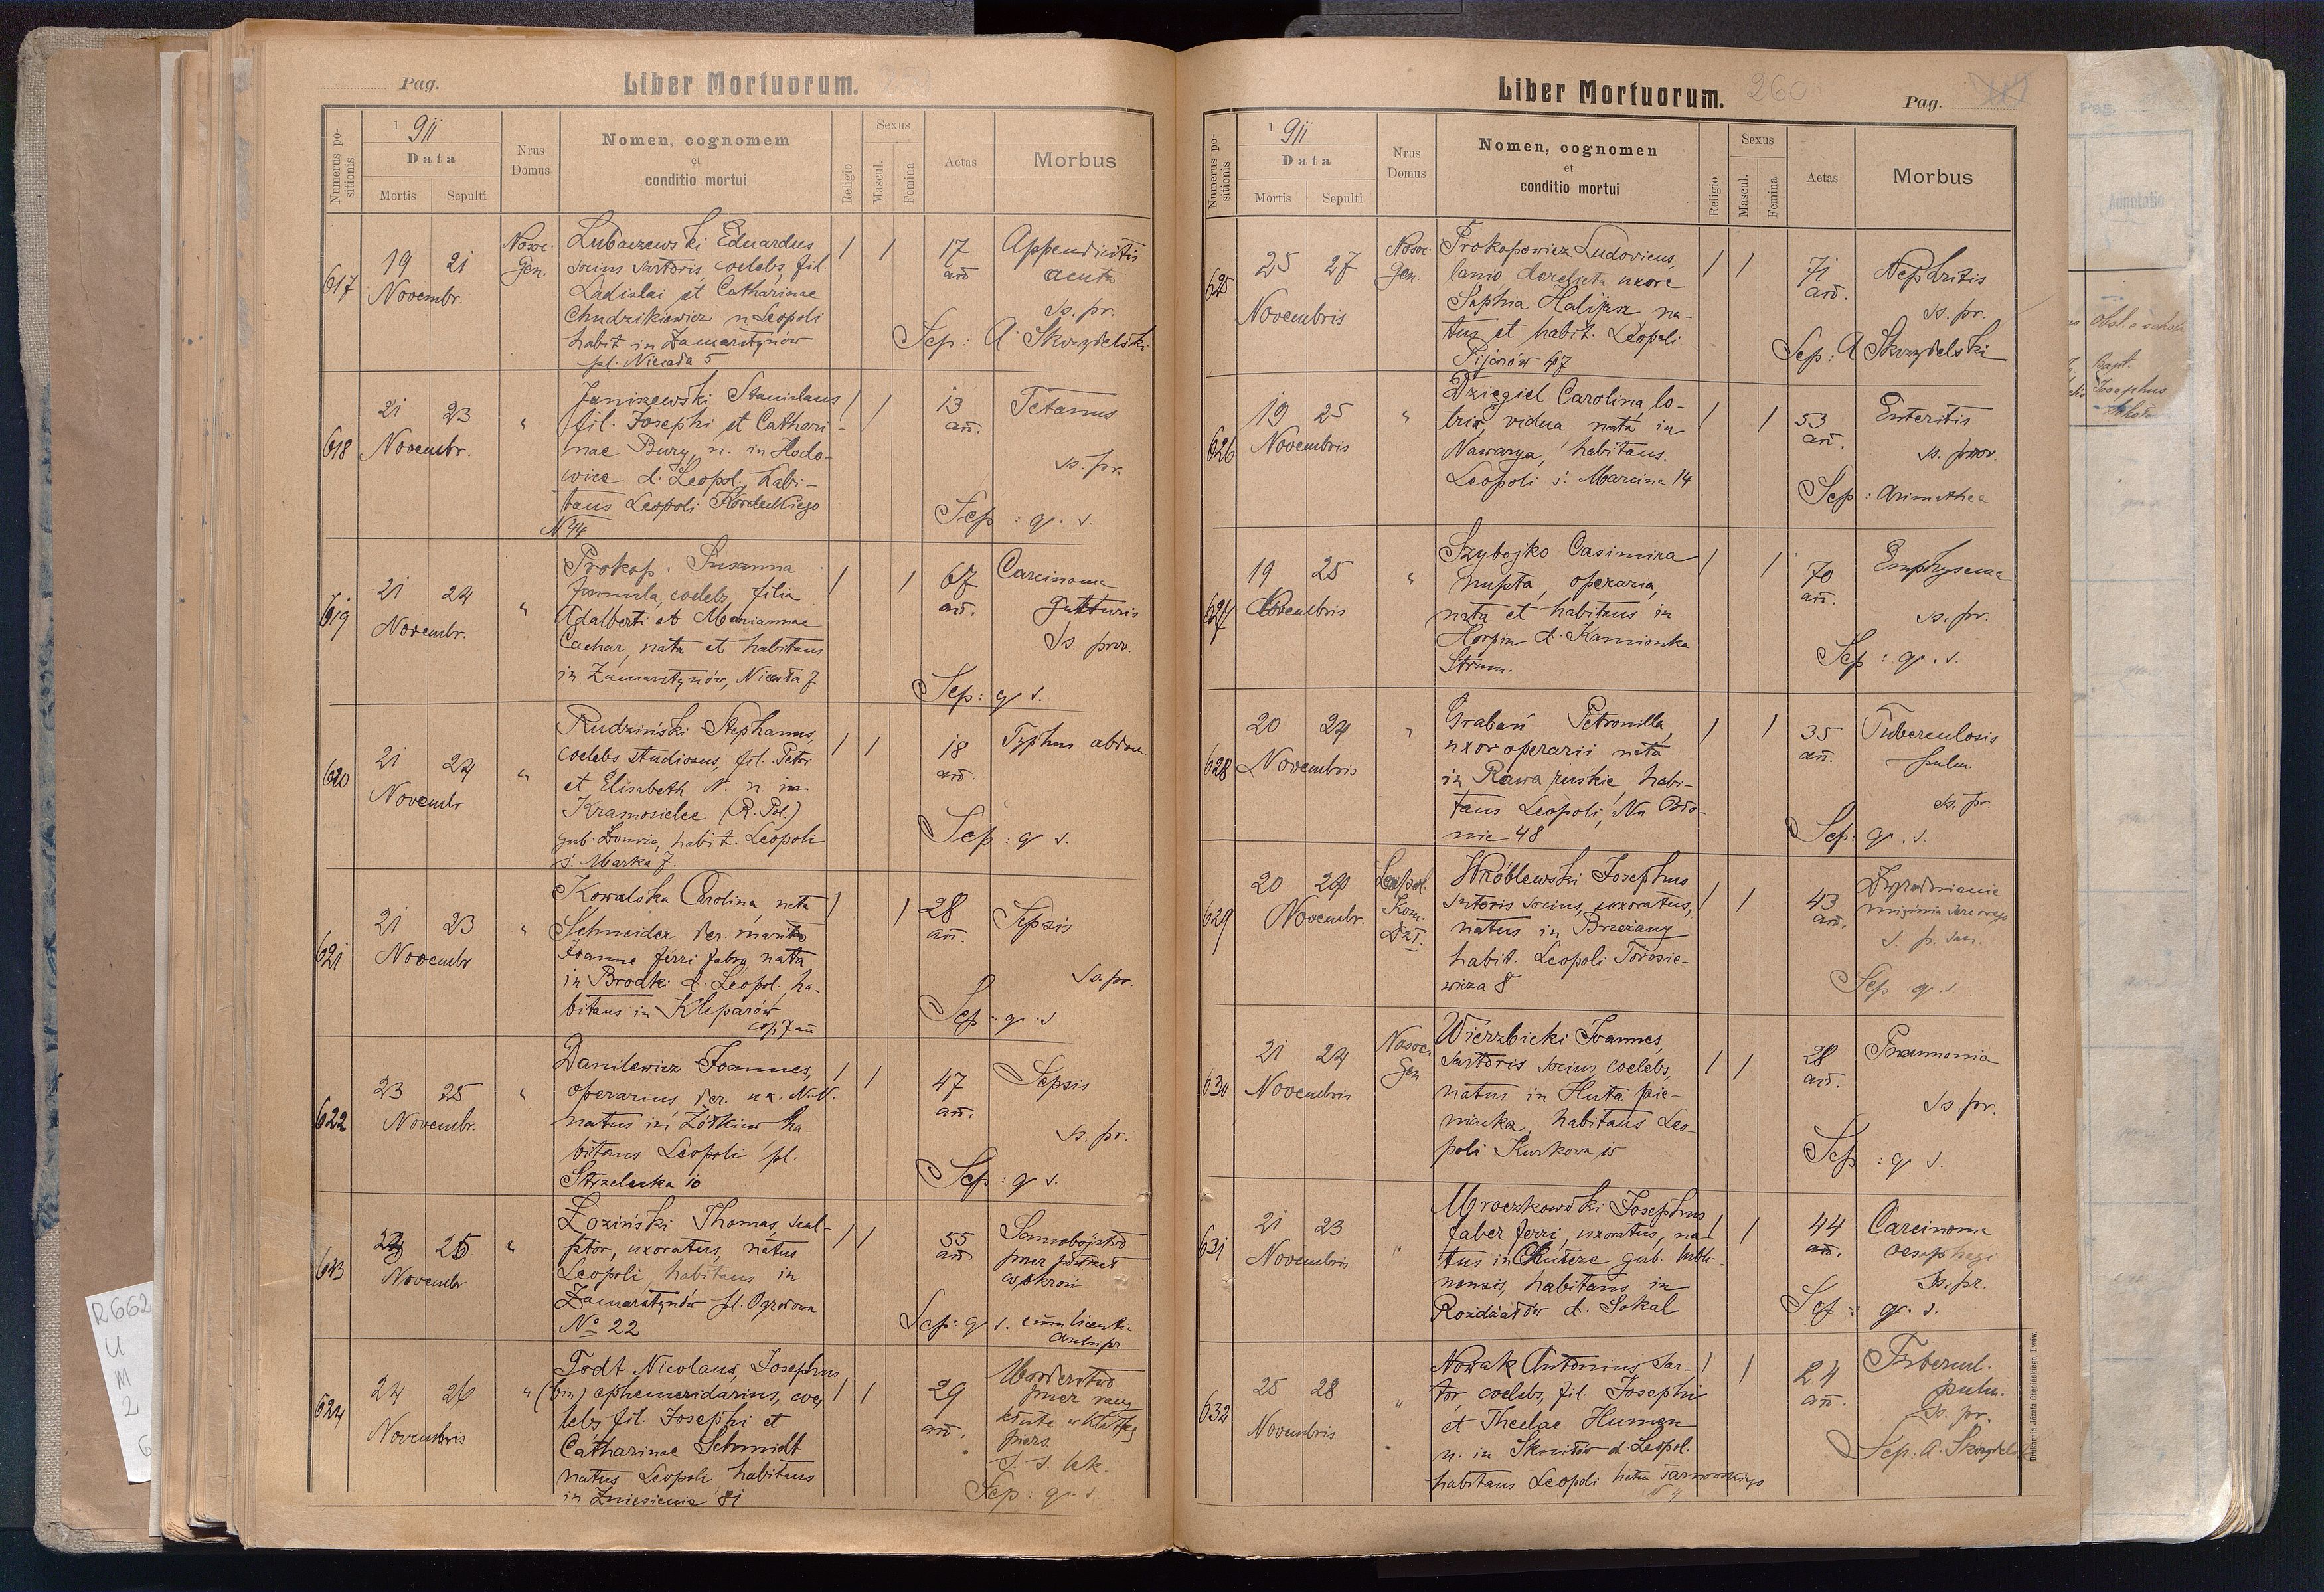 Pag.
Liber Mortuorum.
Numerus positionis
1911
Data
Mortis
Sepulti
Nrus Domus
Nomen, cognomem
et
conditio mortui
Religio
Sexus
Mascul.
Femina
Aetas
Morbus
617
19 21
Novembr.
Nosoc. Gen.
Lubaczewski Eduardus
socius sartoris, coelebs, fil.
Ladislai et Catharinae
Chudzikiewicz n. Leopoli
habit in Zamarstynów
pl. Niecała 5
1 1
17 an̄
Appendicitis
acuta
Ss. pr.
Sep: A. Skrzydelski
618
21 23
Novembr.
"
Janiszewski Stanislaus
fil. Josephi et Cathari-
nae Bury, n. in Hodo-
wice d. Leopol. habi-
tans Leopoli Kordeckiego
N 44
1 1
13 an̄.
Tetanus
Ss. pr.
Sep: q. s.
619
21 24
Novembr.
"
Prokop Susanna
famula, coelebs, filia
Adalberti et Mariannae
Cachar, nata et habitans
in Zamarstynów, Niecała 7
1 1
67 an̄.
Carcinoma
gutturis
Ss. prov.
Sep: q s.
620
21 24
Novembr
"
Rudziński Stephanus,
coelebs studiosus, fil. Petri
et Elisabeth N. n. in
Kramosielce (R. Pol.)
gub. Łomża, habit. Leopoli
s. Marka 7.
1 1
18 an̄.
Typhus abdom
Sep: q s.
621
21 23
Novembr
"
Kowalska Carolina, nata
Schneider der. marito
Joanne ferri fabro nata
in Brodki d. Leopol. ha-
bitans in Kleparów
cop. 7 an̄
1 1
28 an̄.
Sepsis
Ss. pr.
Sep: q. s
622
23 25
Novembr.
"
Danilewicz Joannes,
operarius der. ux. N. N.
natus in Żółkiew ha-
bitans Leopoli pl.
Strzelecka 10
1 1
47 an̄.
Sepsis
Ss. pr.
Sep: q s.
623
25
Novembr
"
Łoziński Thomas, scul-
ptor, uxoratus, natus
Leopoli, habitans in
Zamarstynów pl. Ogrodowa
No 22
1 1
55 an̄
Samobójstwo
przez postrzał
w skroń
Sep: q s. cum licentia
Archipr.
624
24 26
Novembris
"
Todt Nicolaus, Josephus
(bin) ephemeridarius, coe-
lebs, fil. Josephi et
Catharinae Schmidt
natus Leopoli habitans
in Zniesienie 81
1 1
29 an̄.
Morderstwo
przez rany
kłute w klatkę
piers.
S. S. kk.
Sep: q. s.
Liber Mortuorum.
260
Pag.
Numerus positionis
1911
Data
Mortis
Sepulti
Nrus Domus
Nomen, cognomen
et
conditio mortui
Religio
Sexus
Mascul.
Femina
Aetas
Morbus
625
25 27
Novembris
Nosoc. Gen.
Prokopowicz Ludovicus,
lanio derelicta uxore
Sophia Halijasz na-
tus et habit. Leopoli
Pijarów 47
1 1
71 an̄.
Nephritis
Ss. pr.
Sep: A Skrzydelski
626
19 25
Novembris
"
Dzięgiel Carolina lo-
trix, vidua nata in
Nawarya, habitans.
Leopoli s. Marcina 14
1 1
53 an̄.
Enteritis
Ss. prov.
Sep: Arimathea
627
19 25
Novembris
"
Szybojko Casimira
nupta, operaria,
nata et habitans in
Horpin d. Kamionka
Strum.
1 1
70 an̄.
Emphysema
Ss. pr.
Sep: q. s.
628
20 24
Novembris
"
Grabań Petronilla,
uxor operarii nata
in Rawa ruskie habi-
tans Leopoli, Na Bło-
nie 48
1 1
35 an̄.
Tuberculosis
pulm.
Ss. pr.
Sep: q. s.
629
20 24
Novembr.
Kom.
Dz I.
Wróblewski Josephus
sutoris socius, uxoratus,
natus in Brzeżany
habit. Leopoli Torosie-
wicza 8
1 1
43 an̄.
Zwyrodnienie
mięśnia sercowego
Sep q. s.
630
21 24
Novembris
Nosoc. Gen
Wierzbicki Joannes,
sartoris socius, coelebs,
natus in Huta pie-
niacka, habitans Leo-
poli Kurkowa 10
1 1
28 an̄.
Pneumonia
Ss. pr.
Sep: q s.
631
21 23
Novembris
"
Mroczkowski Josephus
faber ferri, uxoratus, na
tus in gub. lubli-
nensis, habitans in
Rożdżałów d. Sokal
1 1
44 an̄.
Carcinoma
oesophagi
Ss. pr.
Sep: q. s.
632
25 28
Novembris
"
Nowak Antonius, sar-
tor, coelebs, fil. Josephi
et Theclae Humen
n. in Skniłów d. Leopol.
habitans Leopoli hetm Tarnowskiego
N 4
1 1
24 an̄.
Tubercul.
pulm.
Ss. pr.
Sep: A. Skrzydelski
Drukarnia Józefa Chęcińskiego, Lwów.
Pag.
Adnotatio
Obst. e schola
Bapt.
Josephus
R662
U
M
2
6